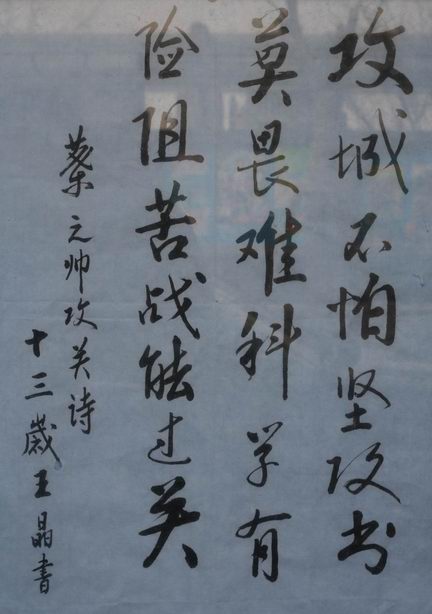 攻城不怕坚攻书
莫畏难科学有
险阻苦战能过关
葉元帅攻关詩
十三歲王晶書